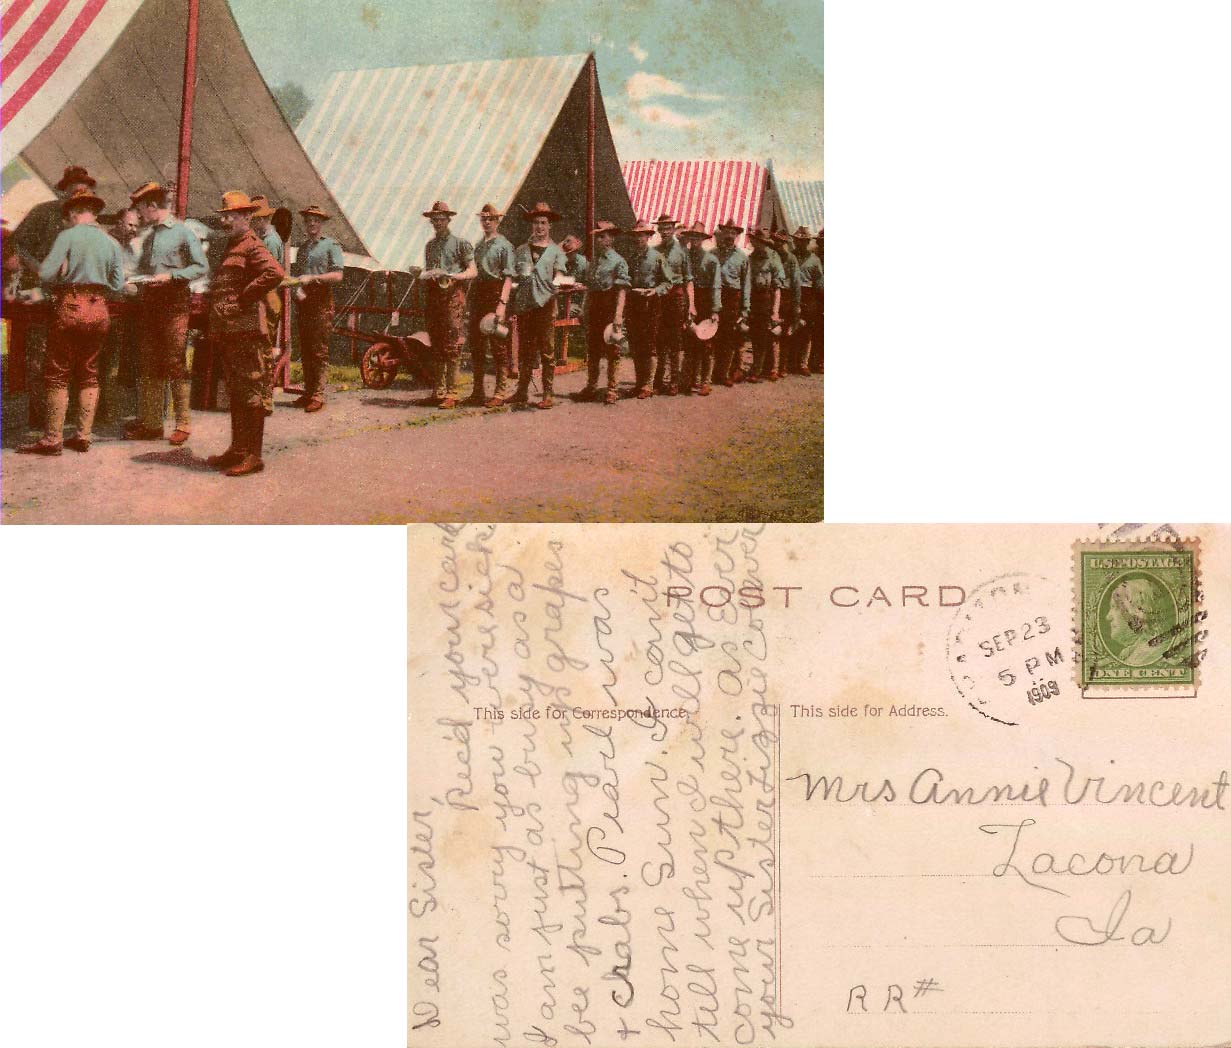 POST CARD
SEP 23
5 PM
1909
U.S. POSTAGE
ONE CENT
This side for Correspondence.
This side for Address.
Dear Sister,
rec'd your card
was sorry you were sick
I am just as busy as a
bee putting up grapes
+ crabs. Pearl was
home Sun. I can't
tell when I will get to
come up there. as Ever
your Sister Lizzie
Mrs Annie Vincent
Lacona
Ia
RR#